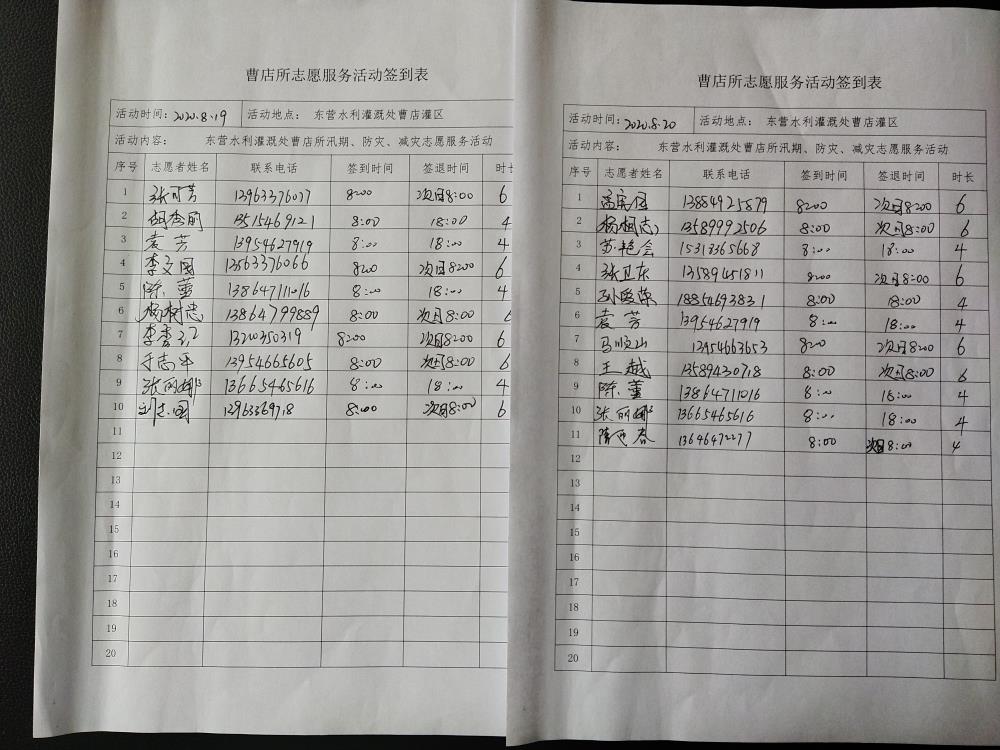 曹店所志愿服务活动签到表
活动时间: 2020.8.19 活动地点: 东营水利灌溉处曹店灌区
活动内容: 东营水利灌溉处曹店所汛期、防灾、减灾志愿服务活动
序号 志愿者姓名 联系电话 签到时间 签退时间 时长
1 张可芳 13963376077 8:00 次日8:00 6
2 胡秀丽 13515469121 8:00 18:00 4
3 袁芳 13954627919 8:00 18:00 4
4 李文国 13563376066 8:00 次日8:00 6
5 陈董 13864711016 8:00 18:00 4
6 杨树志 13864799889 8:00 次日8:00
7 8:00 次日8:00 6
8 于志平 13954665605 8:00 次日8:00 6
9 张丽娜 13665465616 8:00 18:00 4
10 刘志国 8:00 次日8:00 6
11
12
13
14
15
16
17
18
19
20
曹店所志愿服务活动签到表
活动时间: 2020.8.20 活动地点: 东营水利灌溉处曹店灌区
活动内容: 东营水利灌溉处曹店所汛期、防灾、减灾志愿服务活动
序号 志愿者姓名 联系电话 签到时间 签退时间 时长
1 13884925879 8:00 次日8:00 6
2 杨树志 13589992506 8:00 次日8:00 6
3 苏艳会 15313365668 8:00 18:00 4
4 张卫东 13589451811 8:00 次日8:00 6
5 孙俊荣 18854693831 8:00 18:00 4
6 袁芳 13954627919 8:00 18:00 4
7 马顺山 13954663653 8:00 次日8:00 6
8 王越 13589430718 8:00 次日8:00 6
9 陈董 13864711016 8:00 18:00 4
10 张丽娜 13665465616 8:00 18:00 4
11 8:00 次日8:00 4
12
13
14
15
16
17
18
19
20